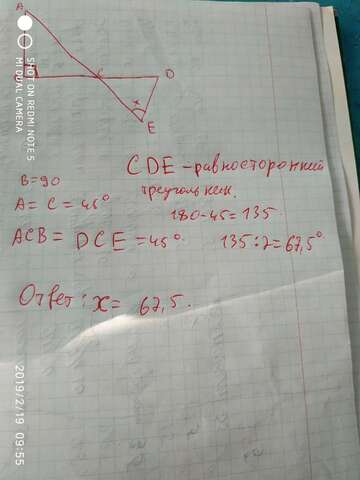 A
C
D
x
E
CDE - равносторонний
треугольник.
B=90
A = C = 45°
180-45=135
ACB = DCE = 45°
135:2=67,5°
Ответ: x= 67,5.
SHOT ON REDMI NOTE 5
MI DUAL CAMERA
2019/2/19 09:55